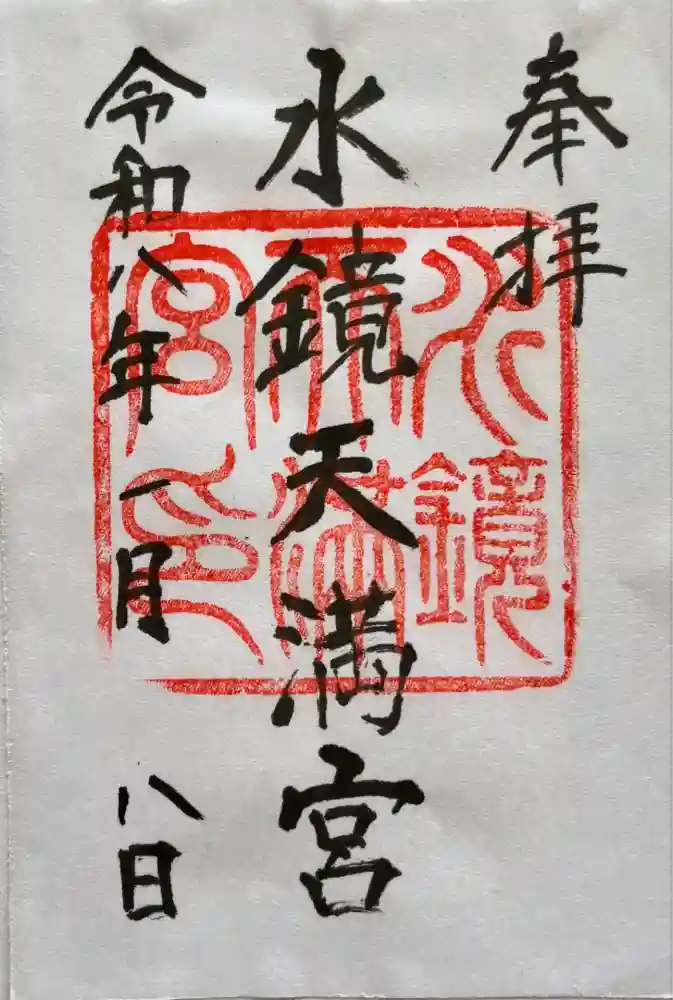 奉拝
水鏡天満宮
令和八年一月八日
水鏡天満宮印